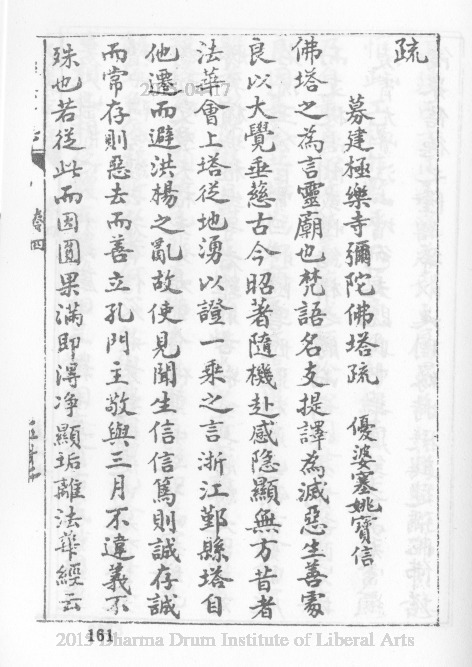 疏
募建極樂寺彌陀佛塔疏　優婆塞姚寶信
佛塔之為言靈廟也梵語名支提譯為滅惡生善處
良以大覺垂慈古今昭著隨機赴感隐顯無方昔者
法華會上塔從地湧以證一乘之言浙江鄞縣塔自
他遷而避洪楊之亂故使見聞生信信篤則誠存誠
而常存則惡去而善立孔門主敬與三月不違義不
殊也若從此而因圓果滿即淂净顯垢離法華經云
卷四
161
2013 Dharma Drum Institute of Liberal Arts